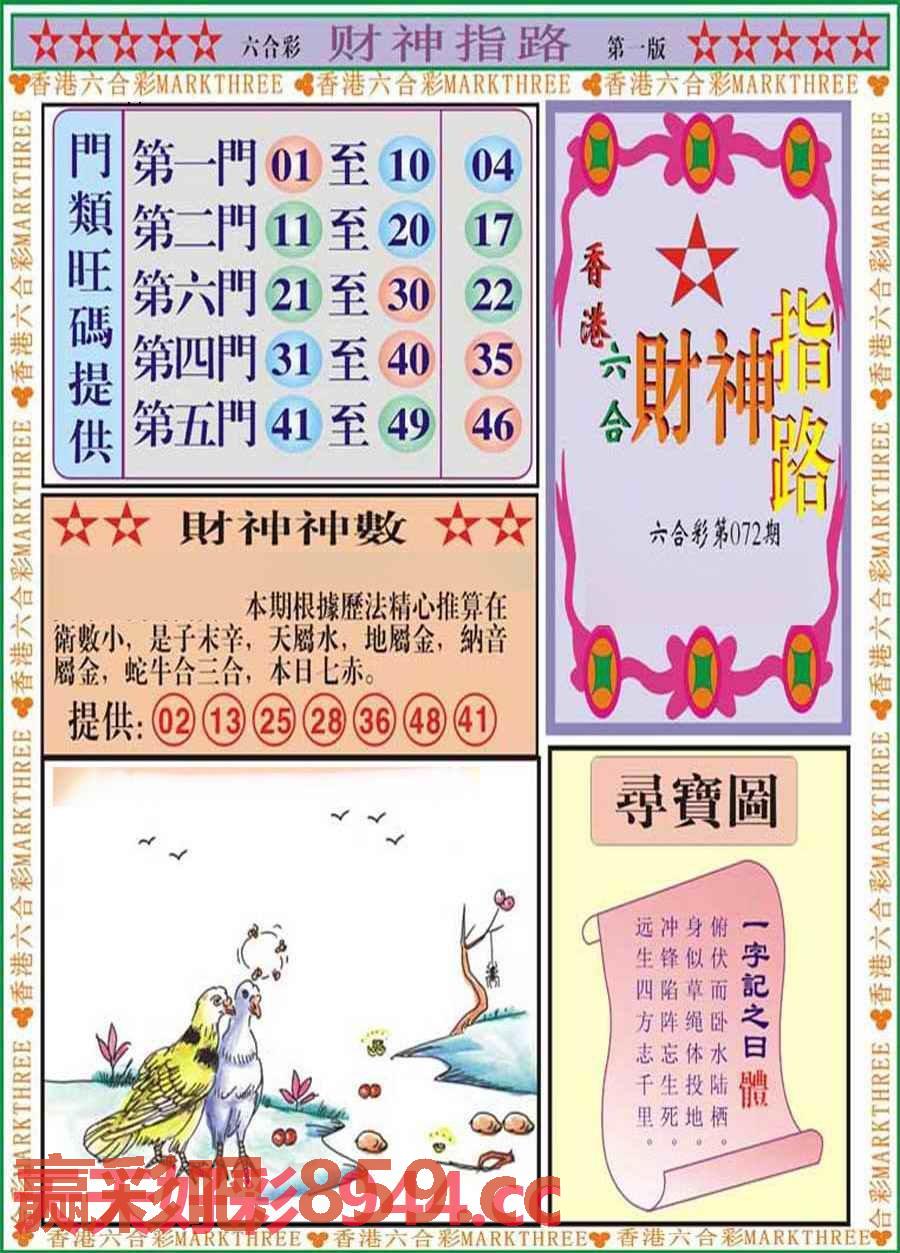 六合彩 财神指路 第一版
香港六合彩MARKTHREE 香港六合彩MARKTHREE 香港六合彩MARKTHREE
門類旺碼提供
第一門 01 至 10 04
第二門 11 至 20 17
第六門 21 至 30 22
第四門 31 至 40 35
第五門 41 至 49 46
香港六合
財神指路
六合彩第072期
財神神數
本期根據歷法精心推算在
衛數小，是子末辛，天屬水，地屬金，納音
屬金，蛇牛合三合，本日七赤。
提供: 02 13 25 28 36 48 41
尋寶圖
一字記之曰 體
俯伏而卧水陆栖
身似草绳体投地。
冲锋陷阵忘生死。
远生四方志千里。
香港六合彩MARKTHREE 香港六合彩MARKTHREE 香港六合彩MARKTHREE